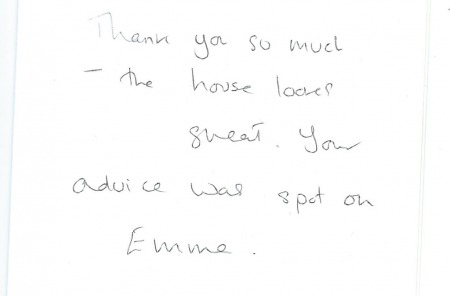 Thank you so much
- the house looks
great. Your
advice was spot on
Emma.